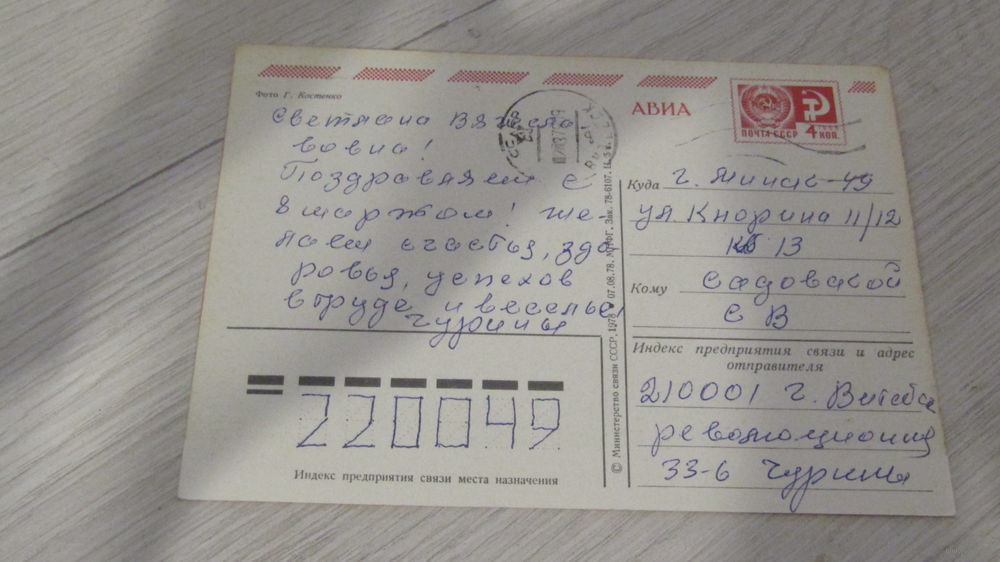 Фото Г. Костенко
Светлана Вячесла
вовна!
Поздравляем с
8 мартом! Же-
лаем счастья, здо-
ровья, успехов
в труде и веселья,
Чурины
220049
Индекс предприятия связи места назначения
© Министерство связи СССР. 1978 07.08.78. МПФГ. Зак. 78-6107.
АВИА
ПОЧТА СССР 4 КОП.
Куда г. Минск-49
ул. Кнорина 11/12
кв 13
Кому Садовской
С В
Индекс предприятия связи и адрес
отправителя
210001 г. Витебск
революционная
33-6 Чурины